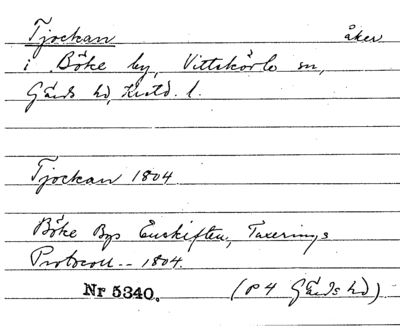 Tjockan åker
i Böke by, Vittskövle sn,
Gärds hd, Kristd. l.
Tjockan 1804.
Böke Bys Enskiften, Taxerings
Protocoll -- 1804.
Nr 5340. (P 4 Gärds hd)